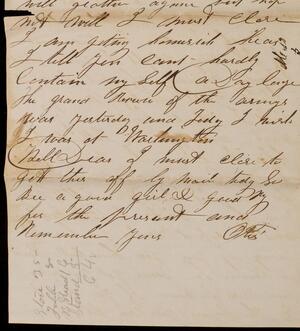 not Well I must Close
I am geting homesick Dear
I tell you I cant hardly
Contain my Self a Day longer
The grand Review of the armys
was yesterday and today I wish
I was at Washington
Well Dear I must close to
get this off by mail today So
Bee a good girl & good by
for the present and
Remember yours Otis